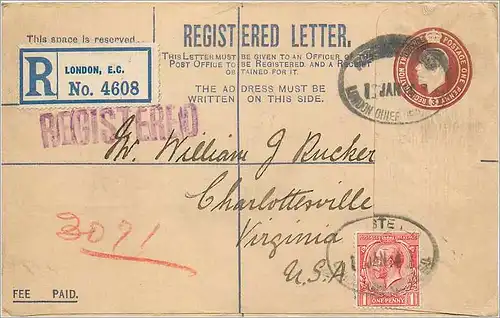 This space is reserved
REGISTERED LETTER.
THIS LETTER MUST BE GIVEN TO AN OFFICER OF THE
POST OFFICE TO BE REGISTERED, AND A RECEIPT
OBTAINED FOR IT.
THE ADDRESS MUST BE
WRITTEN ON THIS SIDE.
R LONDON, E.C.
No. 4608
REGISTERED
POSTAGE ONE PENNY
REGISTRATION
JAN
LONDON
Mr. William J Rucker
Charlottesville
Virginia
U.S.A
3091
JAN
POSTAGE REVENUE
1 ONE PENNY 1
FEE PAID.